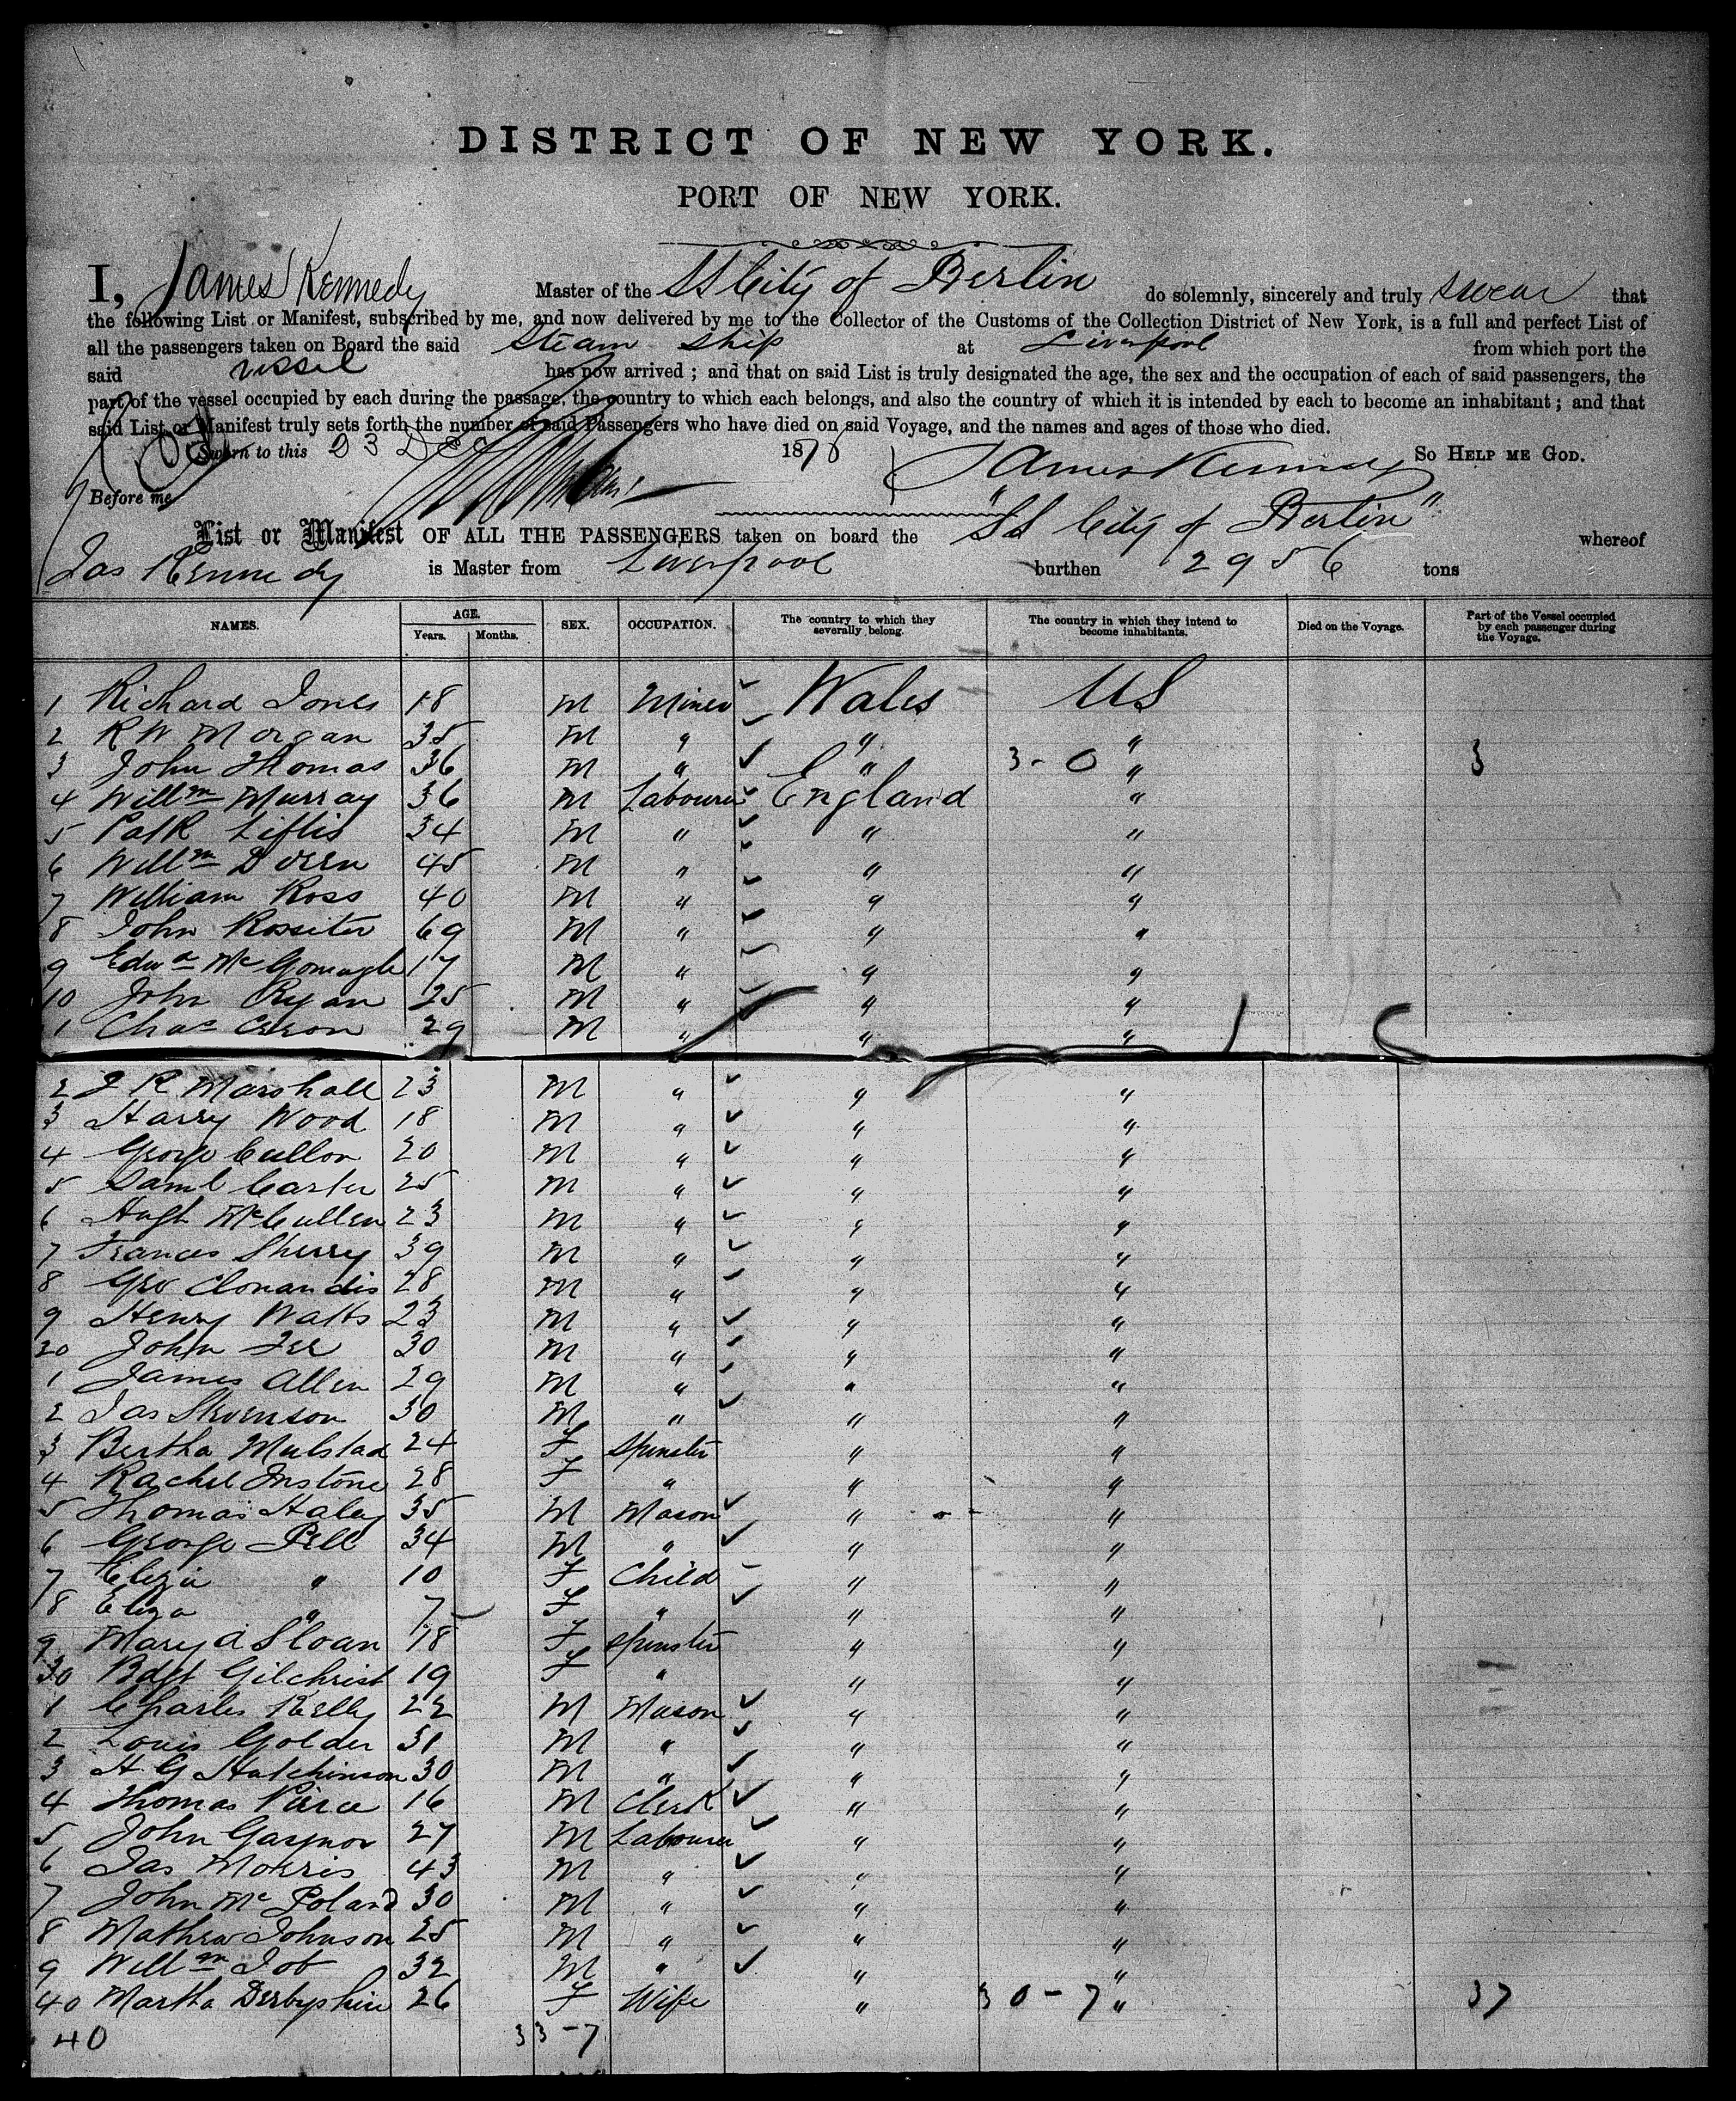 DISTRICT OF NEW YORK.
PORT OF NEW YORK.
I, James Kennedy Master of the SS City of Berlin do solemnly, sincerely and truly swear that
the following List or Manifest, subscribed by me, and now delivered by me to the Collector of the Customs of the Collection District of New York, is a full and perfect List of
all the passengers taken on Board the said Steam Ship at Liverpool from which port the
said vessel has now arrived ; and that on said List is truly designated the age, the sex and the occupation of each of said passengers, the
part of the vessel occupied by each during the passage, the country to which each belongs, and also the country of which it is intended by each to become an inhabitant ; and that
said List or Manifest truly sets forth the number of said Passengers who have died on said Voyage, and the names and ages of those who died.
Sworn to this 23 Dec 1878 James Kennedy So HELP ME GOD.
Before me
List or Manifest OF ALL THE PASSENGERS taken on board the "SS City of Berlin" whereof
Jas Kennedy is Master from Liverpool burthen 2956 tons
NAMES. AGE. Years. Months. SEX. OCCUPATION. The country to which they severally belong. The country in which they intend to become inhabitants. Died on the Voyage. Part of the Vessel occupied by each passenger during the Voyage.
1 Richard Jones 18 M Miner Wales US
2 R W Morgan 35 M " " "
3 John Thomas 36 M " " 3-0 " 3
4 Willm Murray 36 M Labourer England "
5 Patk Liftis 34 M " " "
6 Willm Doren 45 M " " "
7 William Ross 40 M " " "
8 John Rossiter 69 M " " "
9 Edwd McGomagle 17 M " " "
10 John Ryan 25 M " " "
1 Chas 29 M " " "
2 J R Marshall 23 M " " "
3 Harry Wood 18 M " " "
4 George Cullon 20 M " " "
5 Saml Carter 25 M " " "
6 Hugh McCullen 23 M " " "
7 Frances Sherry 39 M " " "
8 Geo 28 M " " "
9 Henry Watts 23 M " " "
20 John Fee 30 M " " "
1 James Allen 29 M " " "
2 Jas Stevenson 30 M " " "
3 Bertha Mulstad 24 F Spinster " "
4 Rachel Instone 28 F " " "
5 Thomas Haley 35 M Mason " "
6 George Pell 34 M " " "
7 Eliza " 10 F Child " "
8 Eliza " 7 F " " "
9 Mary A Sloan 18 F Spinster " "
30 Bdgt Gilchrist 19 F " " "
1 Charles Kelly 22 M Mason " "
2 Louis Golder 31 M " " "
3 H G Hutchinson 30 M " " "
4 Thomas Pierce 16 M Clerk " "
5 John Gaynor 27 M Labourer " "
6 Jas Morris 43 M " " "
7 John Mc Poland 30 M " " "
8 Mathew Johnson 25 M " " "
9 Willm Job 32 M " " "
40 Martha Derbyshire 26 F Wife " 30-7 " 37
40 33-7